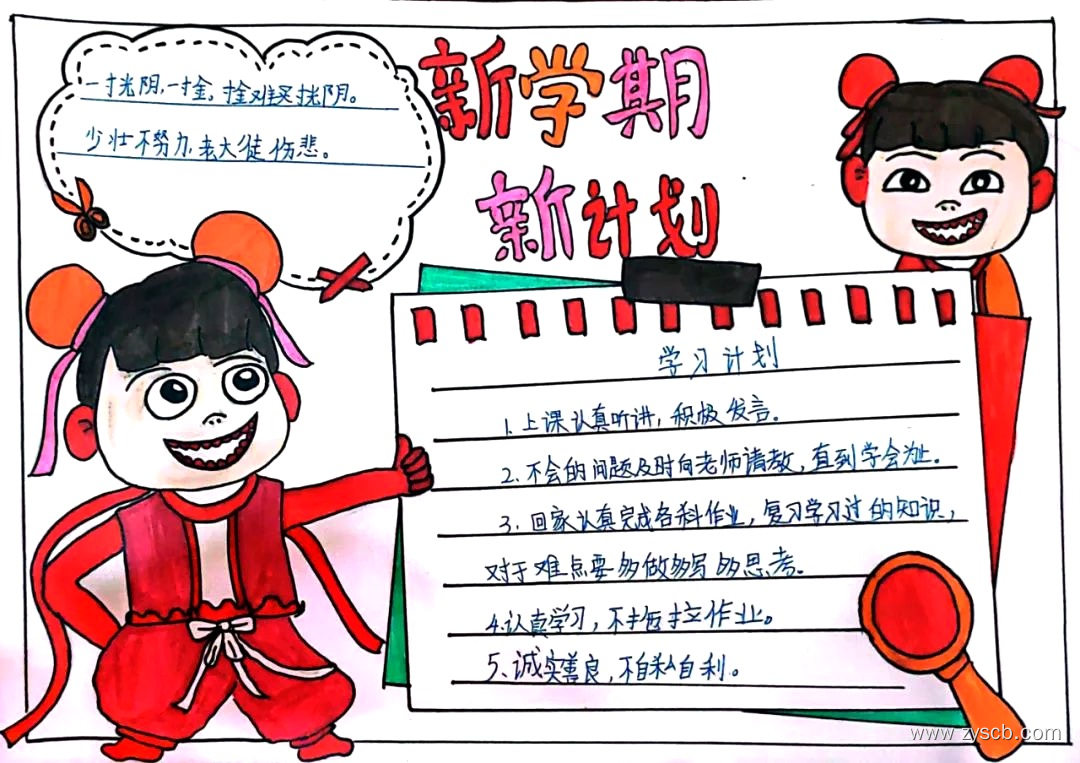 一寸光阴,一寸金,寸金难买寸光阴。
少壮不努力,老大徒伤悲。
新学期
新计划
学习计划
1.上课认真听讲,积极发言。
2.不会的问题及时向老师请教,直到学会为止。
3.回家认真完成各科作业,复习学习过的知识,
对于难点要多做多写多思考。
4.认真学习,不拖拉作业。
5、诚实善良,不自私自利。
www.zyscb.com